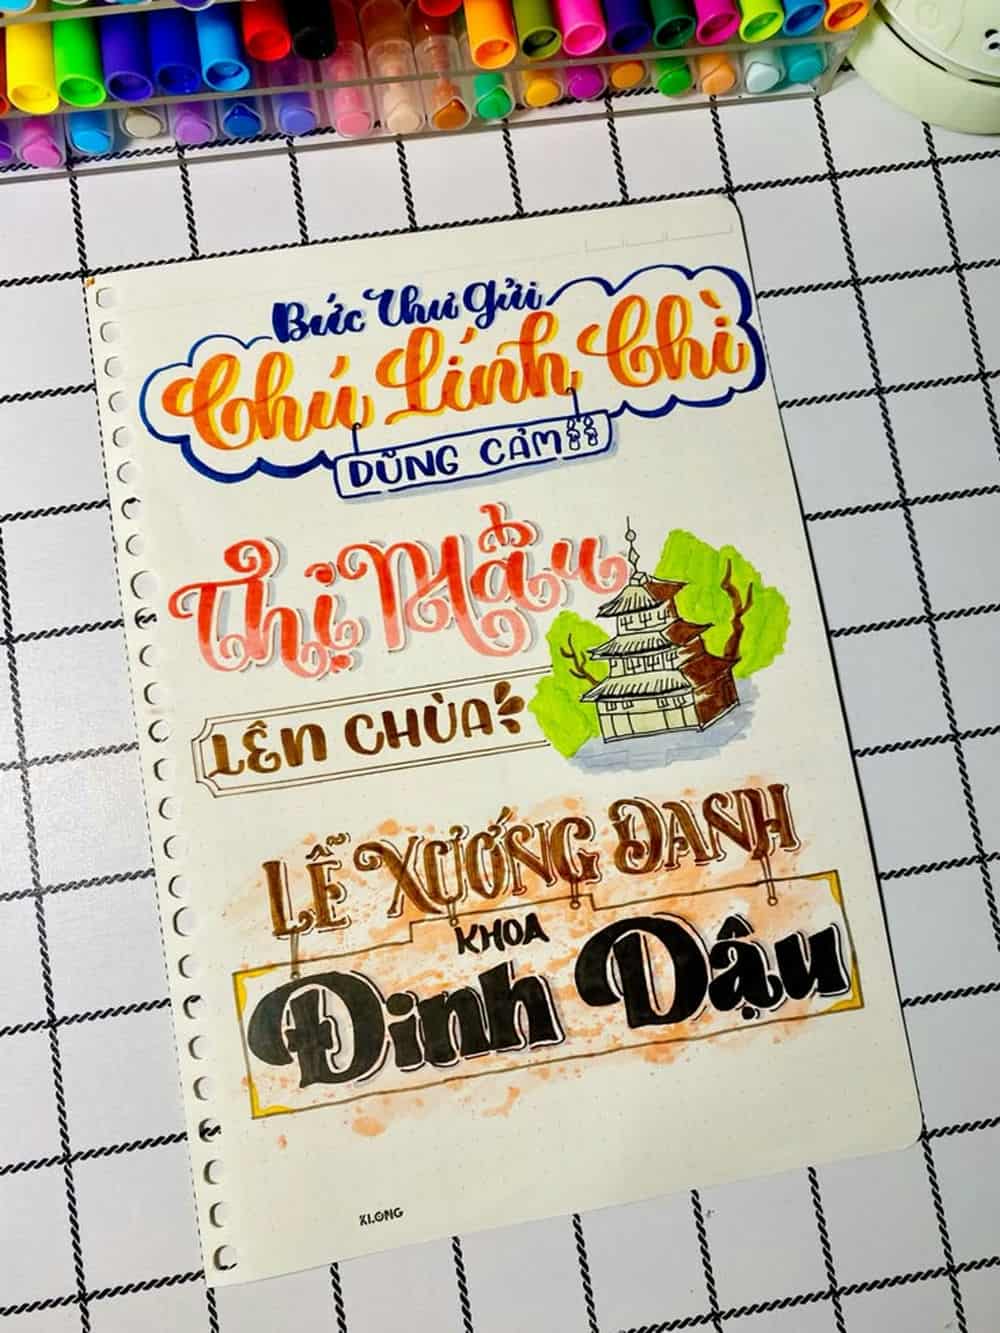 Bức Thư Gửi
Chú Lính Chì
DŨNG CẢM
Thị Mầu
LÊN CHÙA
LỄ XƯỚNG DANH
KHOA
Đinh Dậu
KLONG